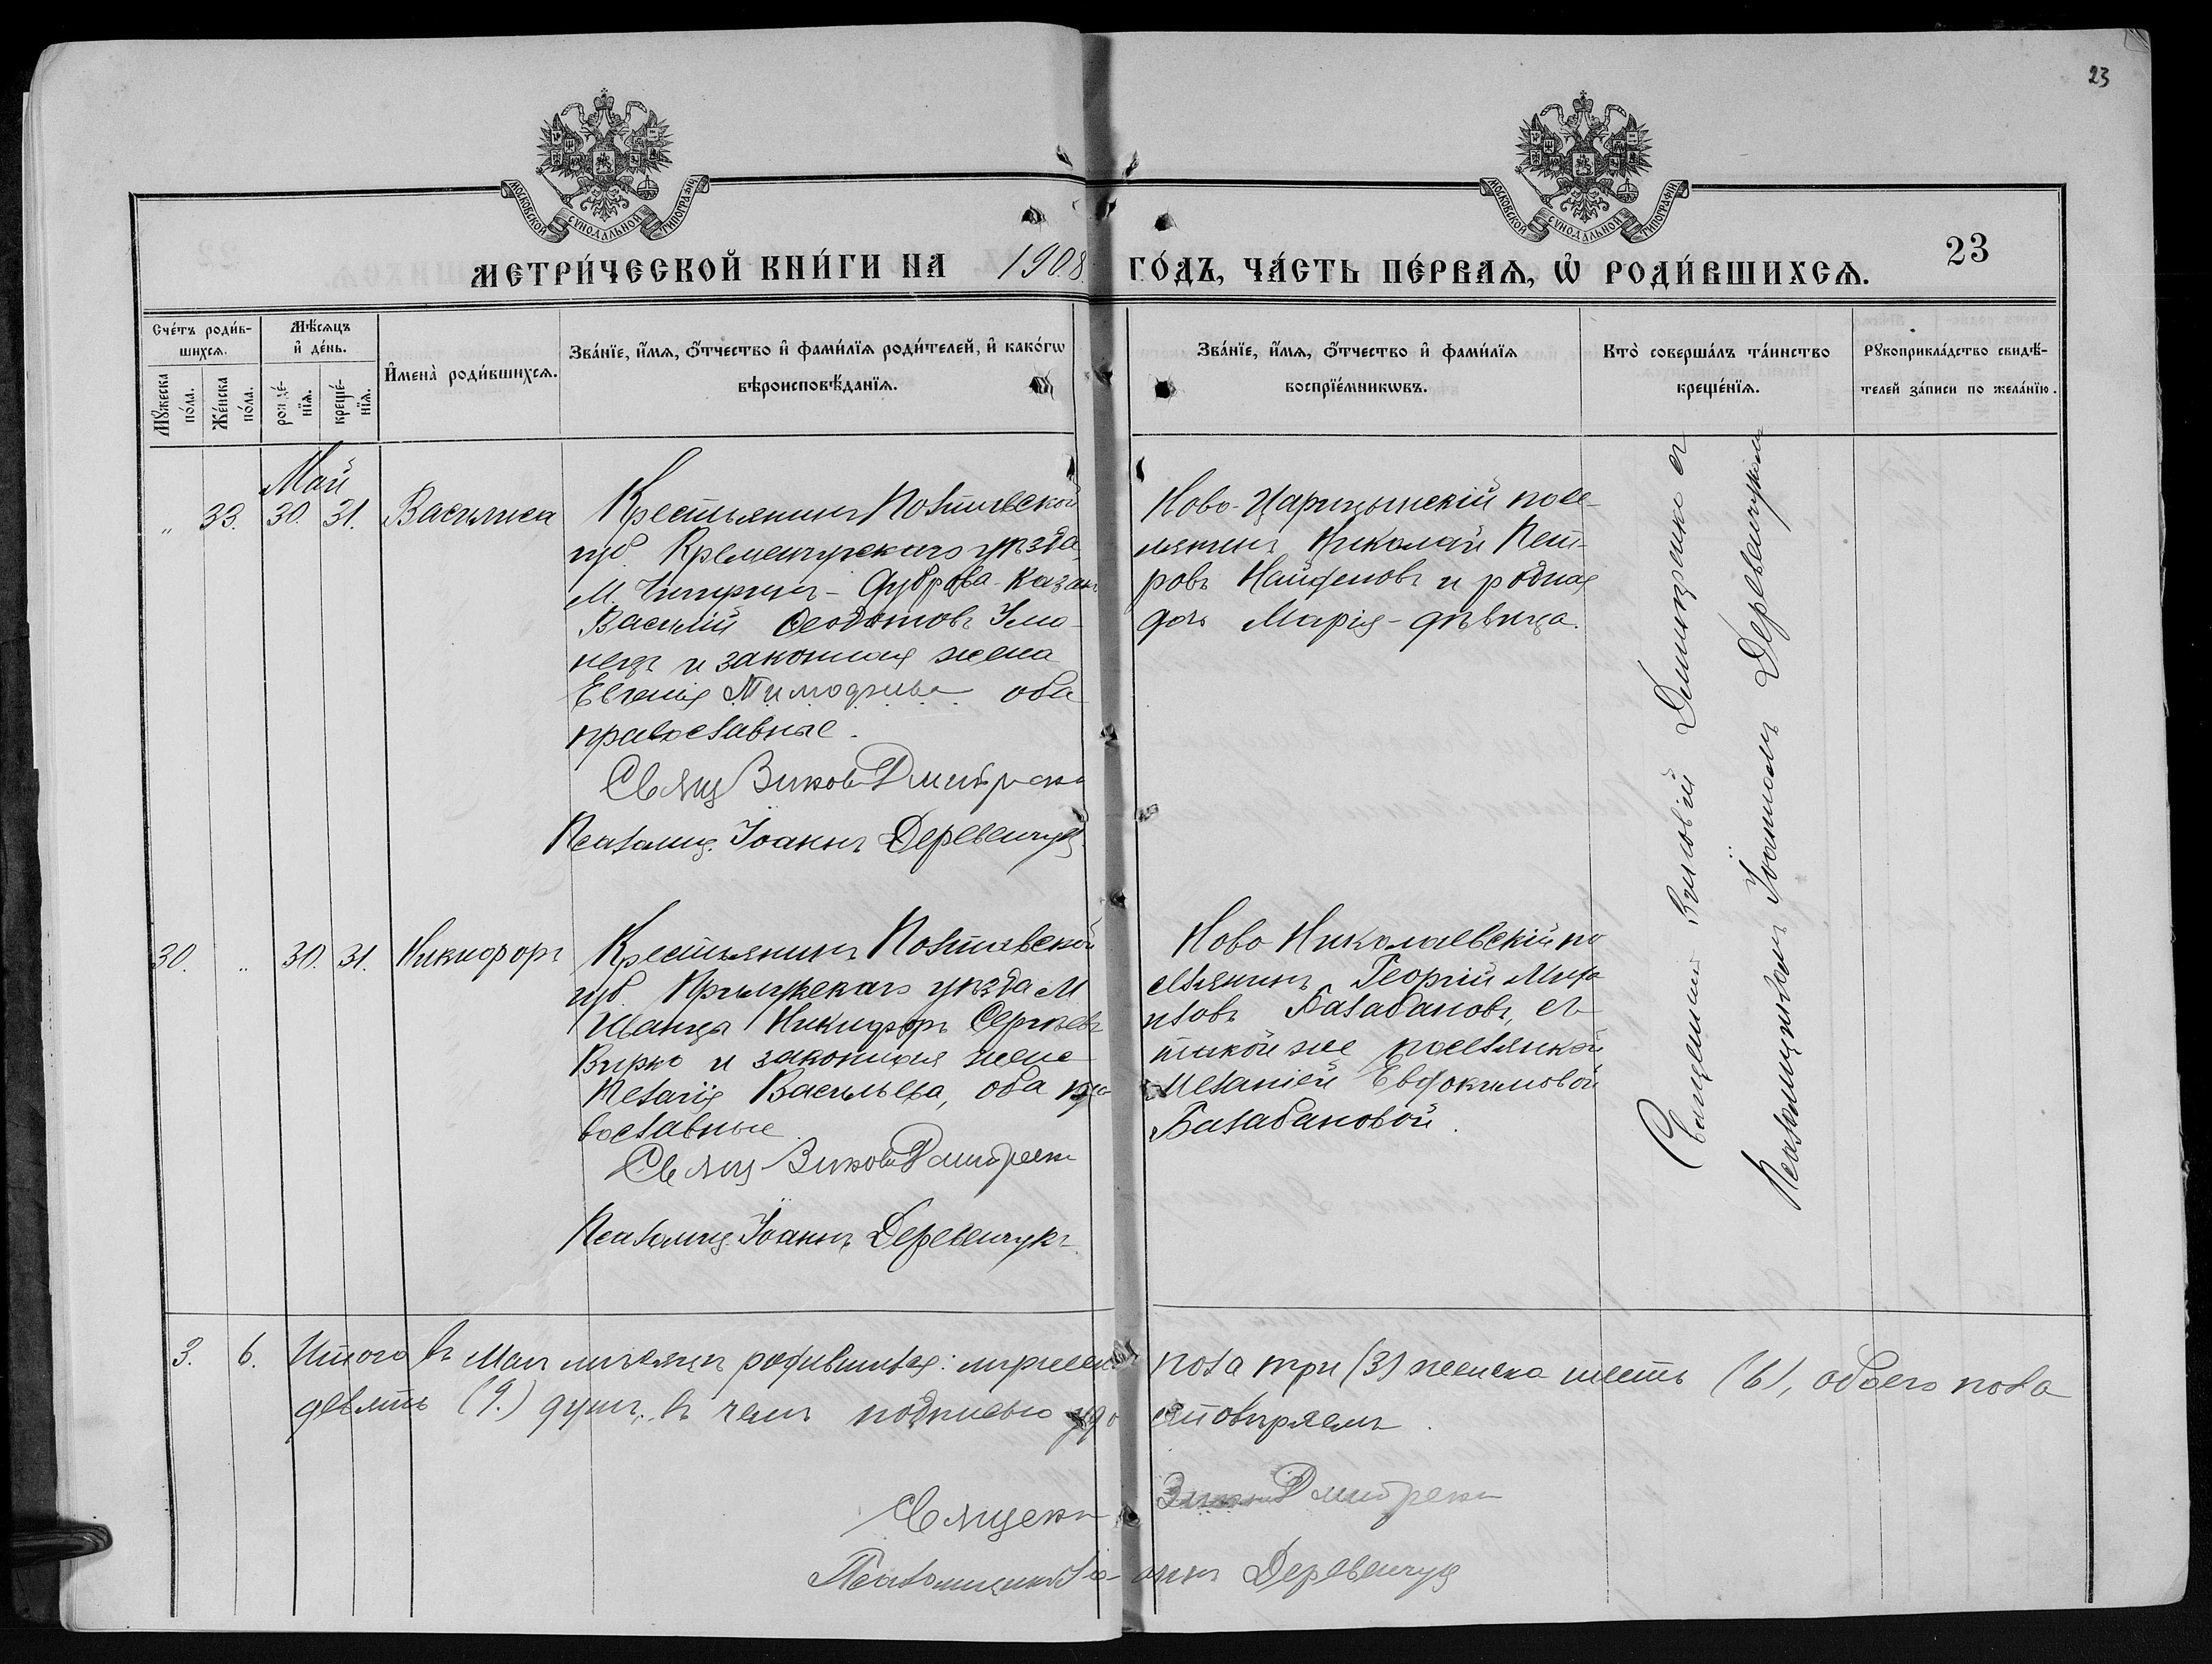 23
МОСКОВСКОЙ СѴНОДАЛЬНОЙ ТИПОГРАФІИ
МОСКОВСКОЙ СѴНОДАЛЬНОЙ ТИПОГРАФІИ
МЕТРИ́ЧЕСКОЙ КНИ́ГИ НА 1908 ГО́ДЪ, ЧА́СТЬ ПЕ́РВАѦ, Ѡ҆ РОДИ́ВШИХСѦ.
23
Сче́тъ роди́в-
шихсѧ.
Мꙋжеска по́ла.
Же́нска по́ла.
Мѣ́сѧцъ
и҆ де́нь.
рожде́-
нїѧ.
креще́-
нїѧ.
И҆мена̀ роди́вшихсѧ.
Зва́нїе, и҆́мѧ, ѻ҆́тчество и҆ фами́лїѧ роди́телей, и҆ како́гѡ
вѣроисповѣ́данїѧ.
Зва́нїе, и҆́мѧ, ѻ҆́тчество и҆ фами́лїѧ
воспрїе́мникѡвъ.
Кто̀ соверша́лъ та́инство
креще́нїѧ.
Рꙋкоприкла́дство свидѣ́-
телей за́писи по жела́нїю.
Май
" 33. 30. 31. Василиса
Крестьянинъ Полтавской
губ. Кременчугскаго уѣзда
М. Чигринъ-Дуброва-Казакъ
Василій Ѳеодотовъ
и законная жена
Евгенія Тимофѣева оба
православные.
Свящ Зиновій Дмитренко
Псаломщ. Іоаннъ Деревенчукъ
Ново-Царицынскій посе-
лянинъ Николай Пет-
ровъ Найденовъ и родная
дочь Марія - дѣвица.
Священникъ Зиновій Дмитренко съ
Псаломщикомъ Іоанномъ Деревенчукомъ
30. " 30. 31. Никифоръ
Крестьянинъ Полтавской
губ. уѣзда М
Никифоръ Сергѣевъ
Вирко и законная жена
Пелагія Васильева, оба пра
вославные
Свящ Зиновій Дмитренко
Псаломщ. Іоаннъ Деревенчукъ.
Ново Николаевскій по
селянинъ Георгій Миха
иловъ Балабановъ, съ
такой же поселянкой
Меланіей Евдокимовой
Балабановой.
3. 6. Итого въ Маѣ мѣсяцѣ родившихся: мужеска пола три (3) женска шесть (6), обоего пола
девять (9.) душъ, въ чемъ подписью удо стовѣряемъ.
Священникъ Зиновій Дмитренко
Псаломщикъ Іо- аннъ Деревенчукъ